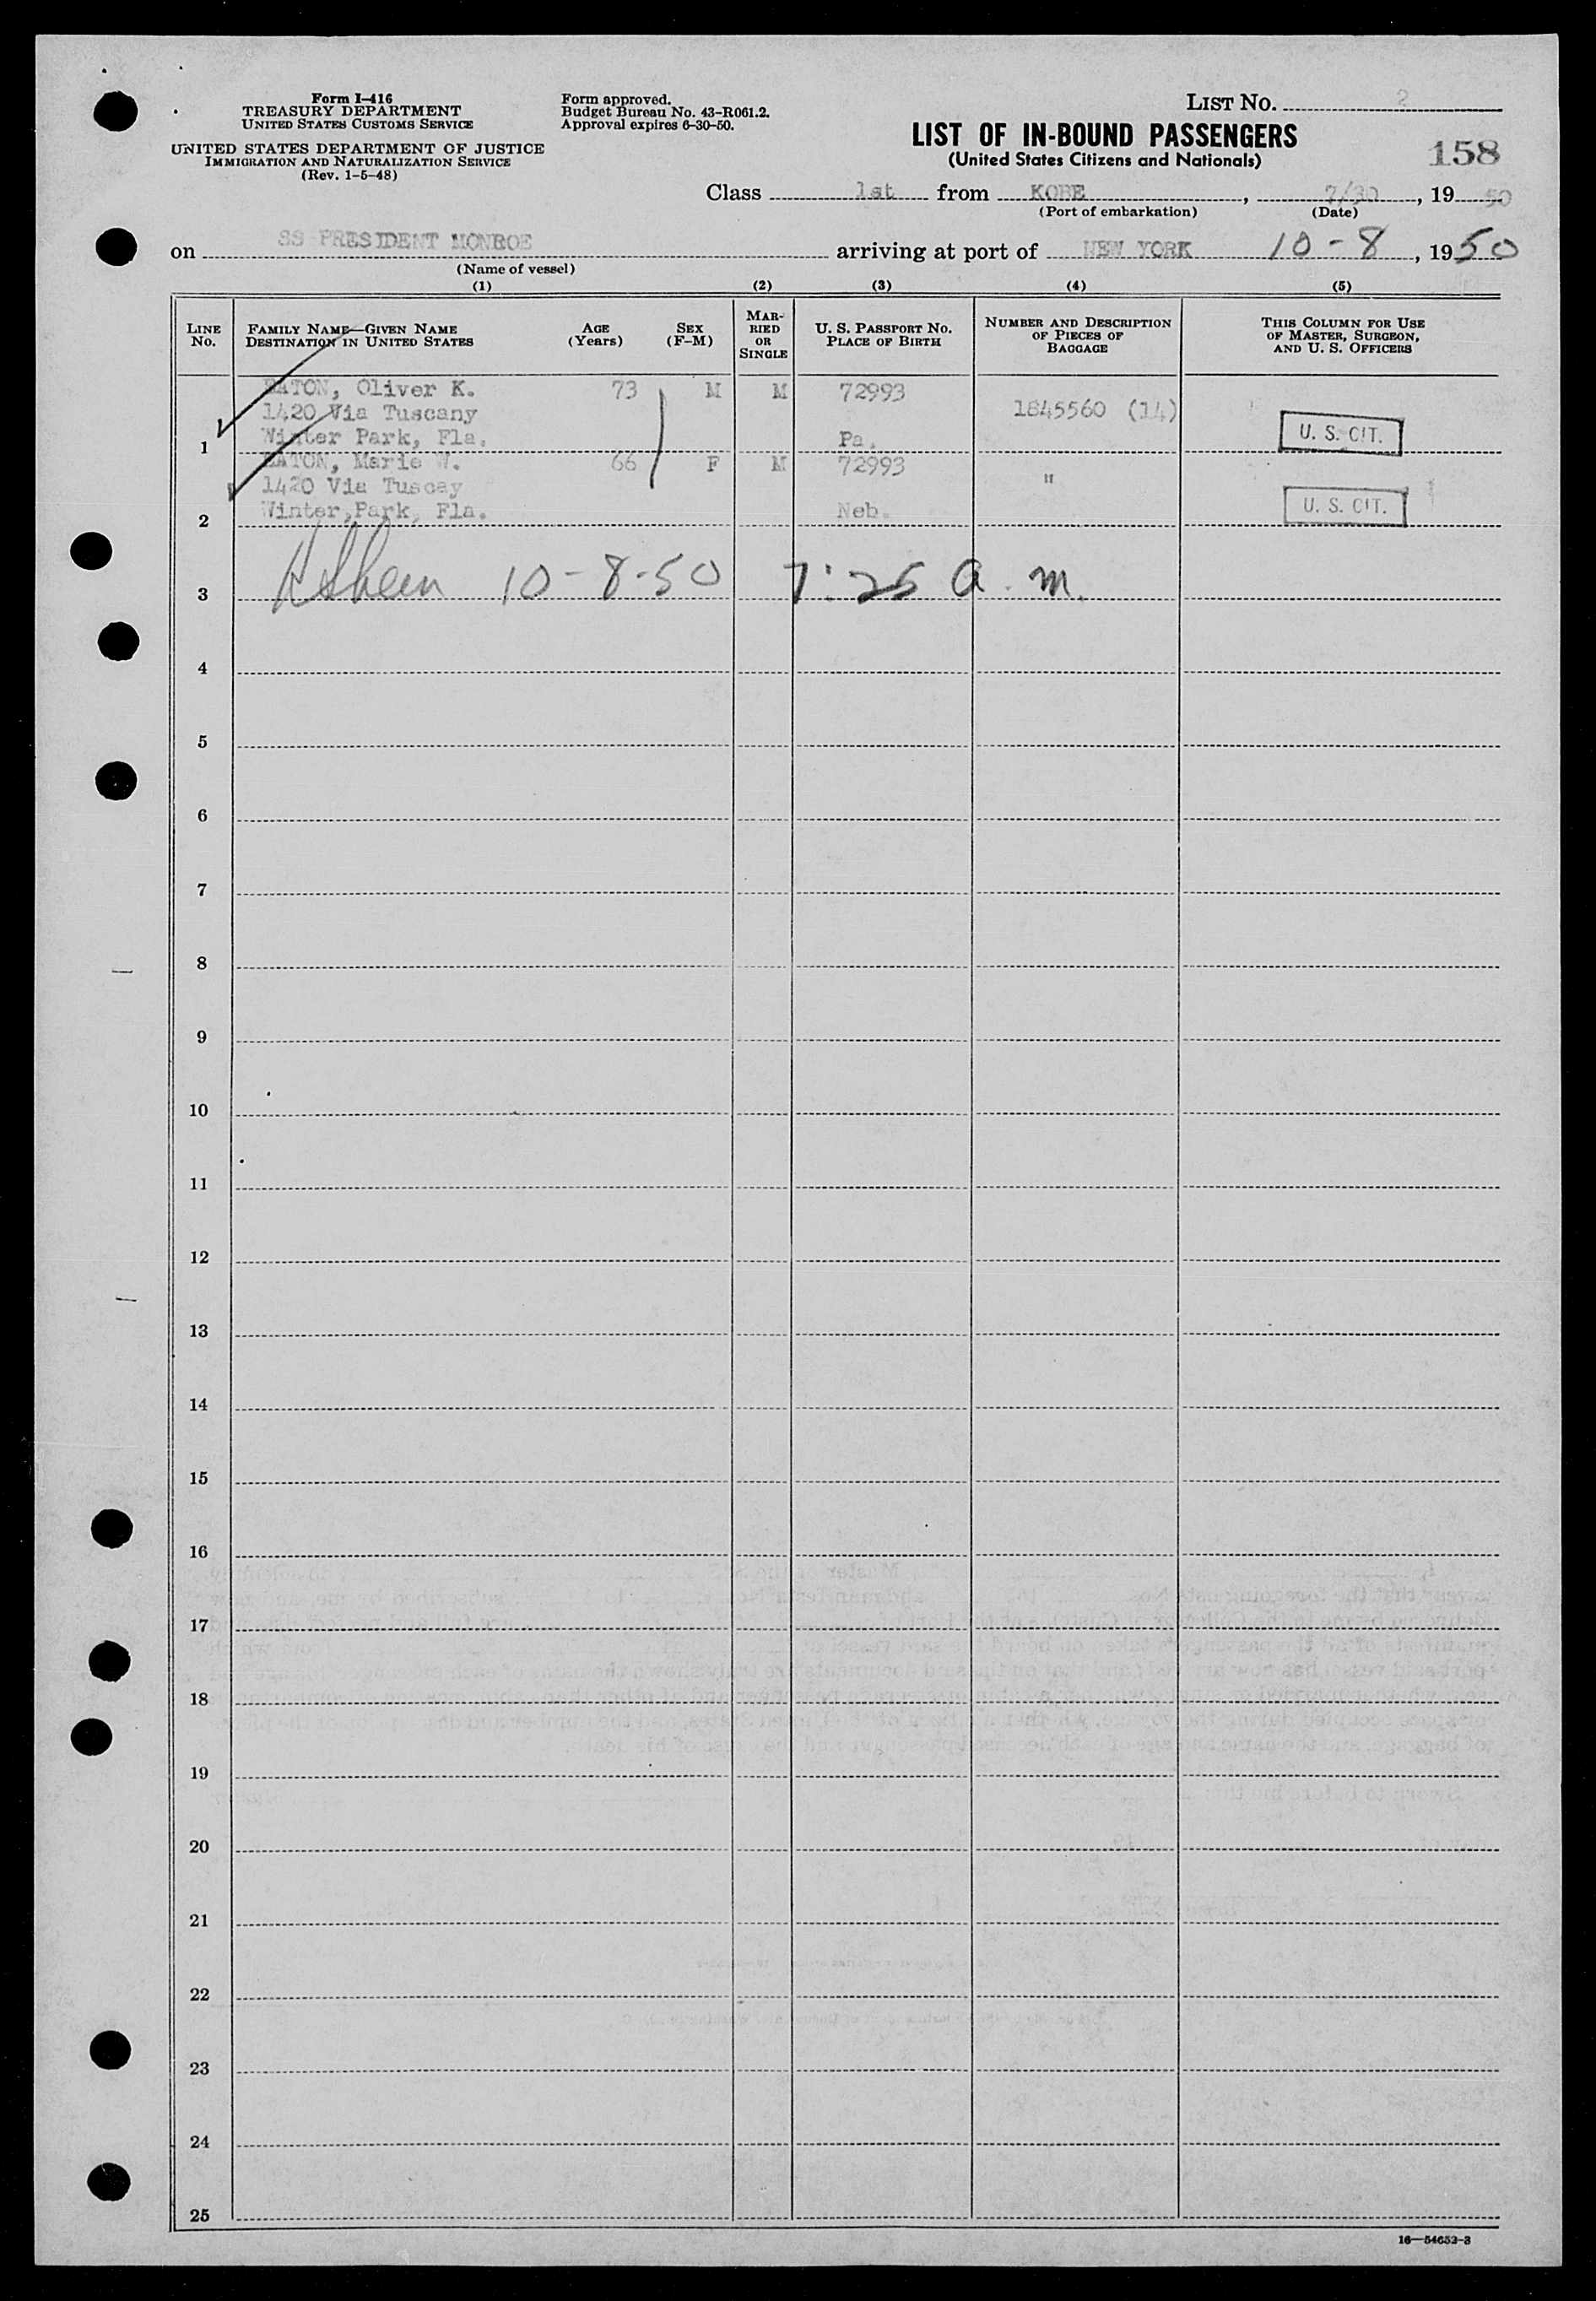 Form I-416
TREASURY DEPARTMENT
UNITED STATES CUSTOMS SERVICE
UNITED STATES DEPARTMENT OF JUSTICE
IMMIGRATION AND NATURALIZATION SERVICE
(Rev. 1-5-48)
Form approved.
Budget Bureau No. 43-R061.2.
Approval expires 6-30-50.
LIST NO. 2
LIST OF IN-BOUND PASSENGERS
(United States Citizens and Nationals)
158
Class 1st from KOBE, 7/30, 19 50
(Port of embarkation) (Date)
on SS PRESIDENT MONROE arriving at port of NEW YORK 10-8, 1950
(Name of vessel)
(1) (2) (3) (4) (5)
LINE NO.
FAMILY NAME—GIVEN NAME
DESTINATION IN UNITED STATES
AGE (Years)
SEX (F-M)
MARRIED OR SINGLE
U. S. PASSPORT NO.
PLACE OF BIRTH
NUMBER AND DESCRIPTION OF PIECES OF BAGGAGE
THIS COLUMN FOR USE OF MASTER, SURGEON, AND U. S. OFFICERS
EATON, Oliver K. 73 M M 72993
1420 Via Tuscany 1845560 (14)
1 Winter Park, Fla. Pa. U. S. CIT.
EATON, Marie W. 66 F M 72993
1420 Via Tuscay "
2 Winter,Park, Fla. Neb. U. S. CIT.
3 10-8-50 7:25 a.m.
4
5
6
7
8
9
10
11
12
13
14
15
16
17
18
19
20
21
22
23
24
25
16—54652-3